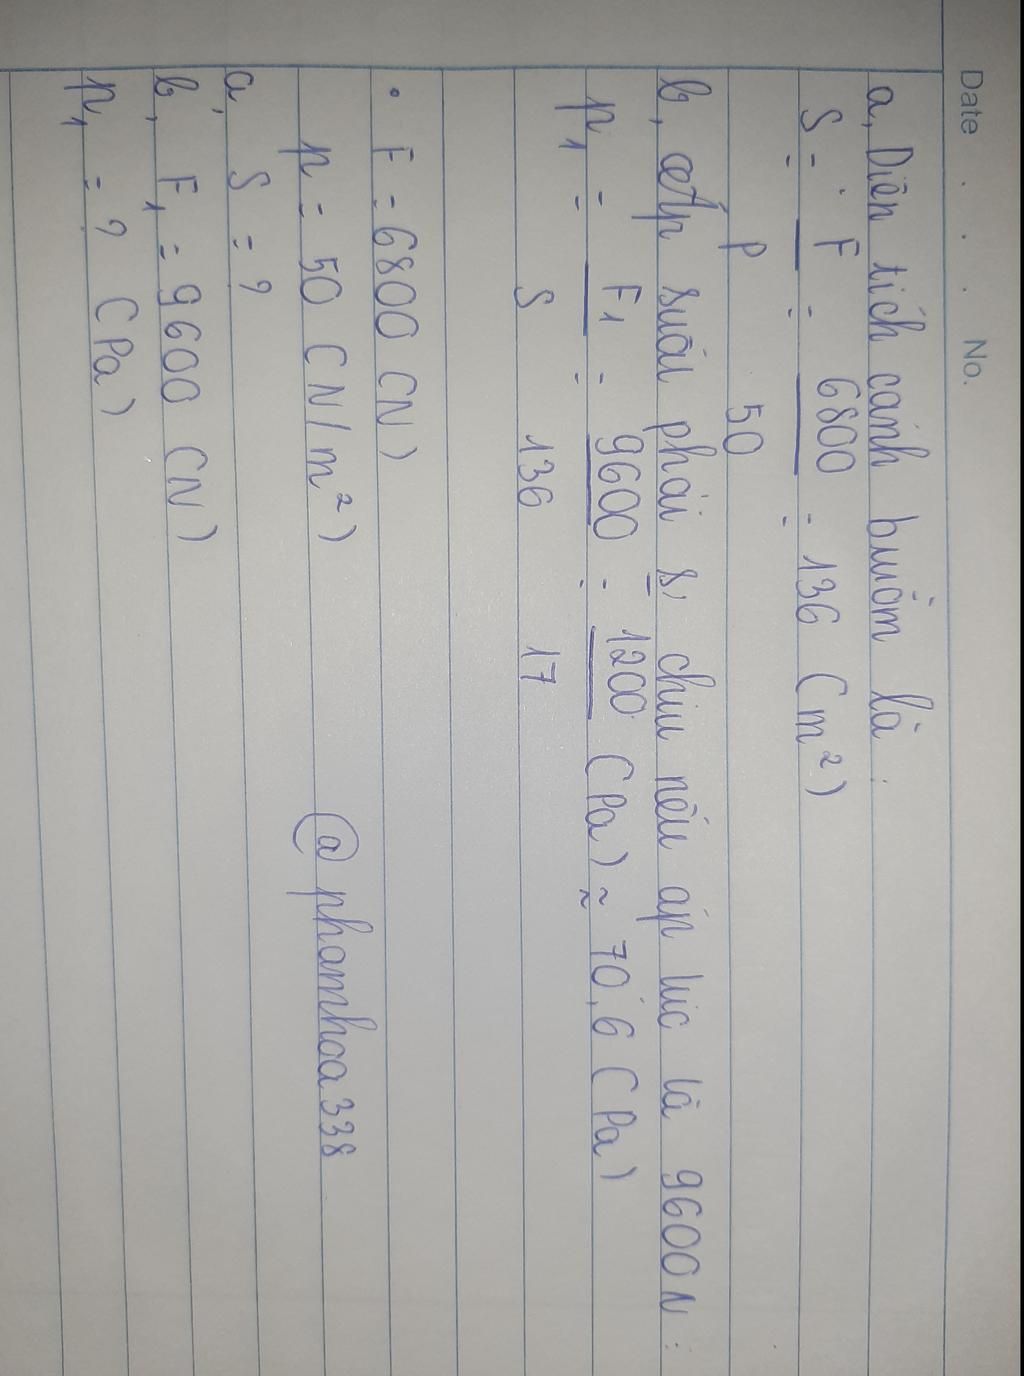 Date . . . No.
a, Diện tích cánh buồm là :
S = F = 6800 = 136 (m²)
p 50
b, Áp suất phải chịu nếu áp lực là 9600 N :
p₁ = F₁ = 9600 = 1200 (Pa) ≈ 70,6 (Pa)
S 136 17
• F = 6800 (N)
p = 50 (N/m²)
a, S = ?
@phamhoa338
b, F₁ = 9600 (N)
p₁ = ? (Pa)